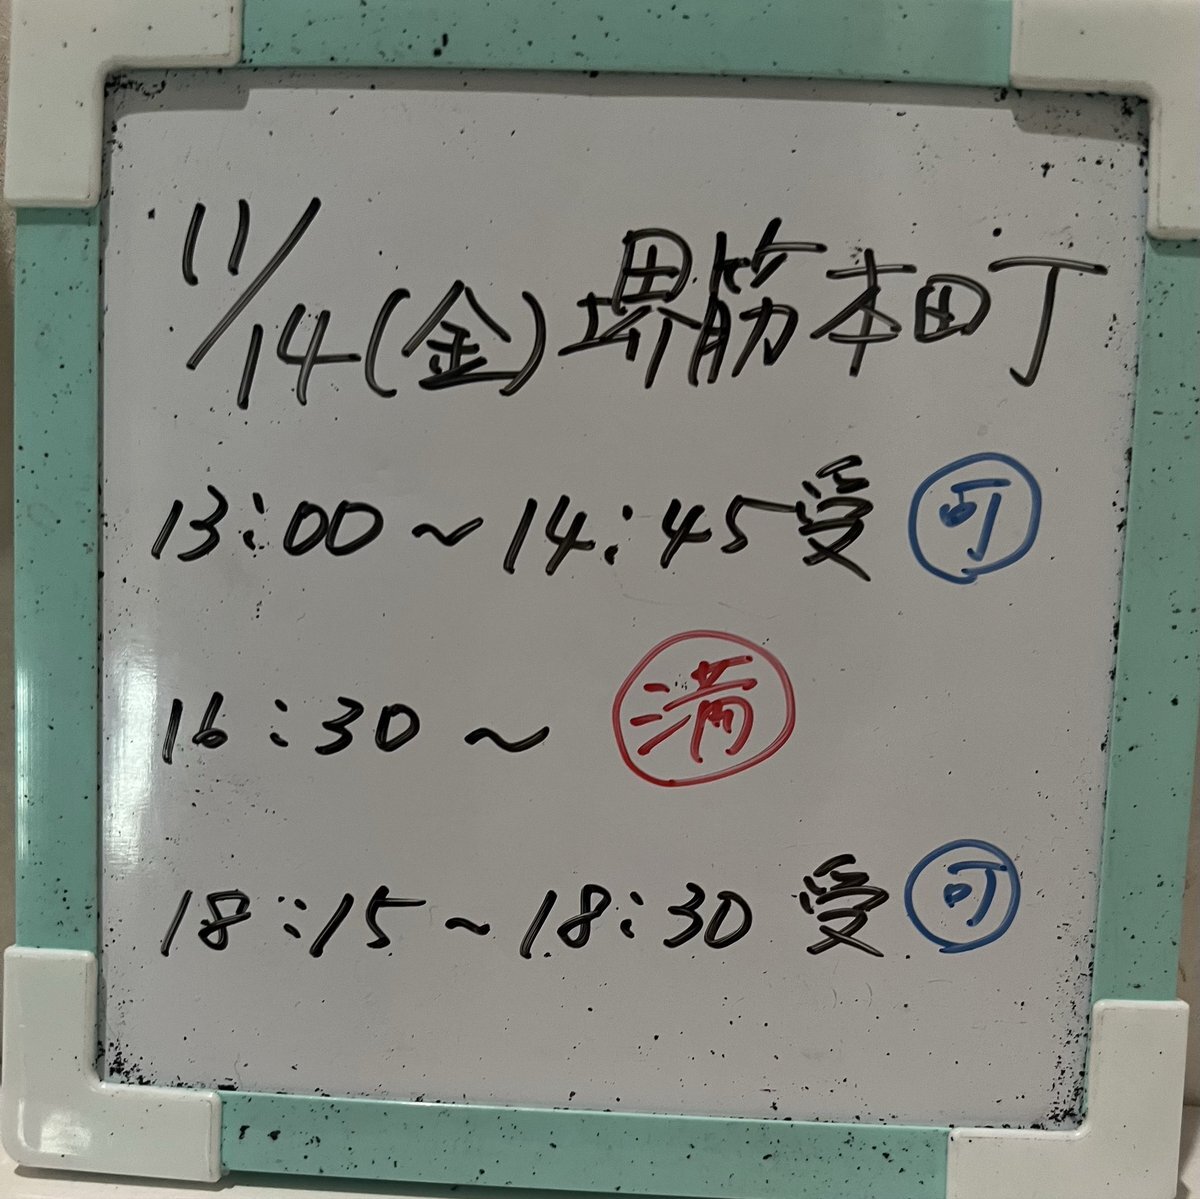 11/14(金)堺筋本町
13:00～14:45受 可
16:30～ 満
18:15～18:30 受 可